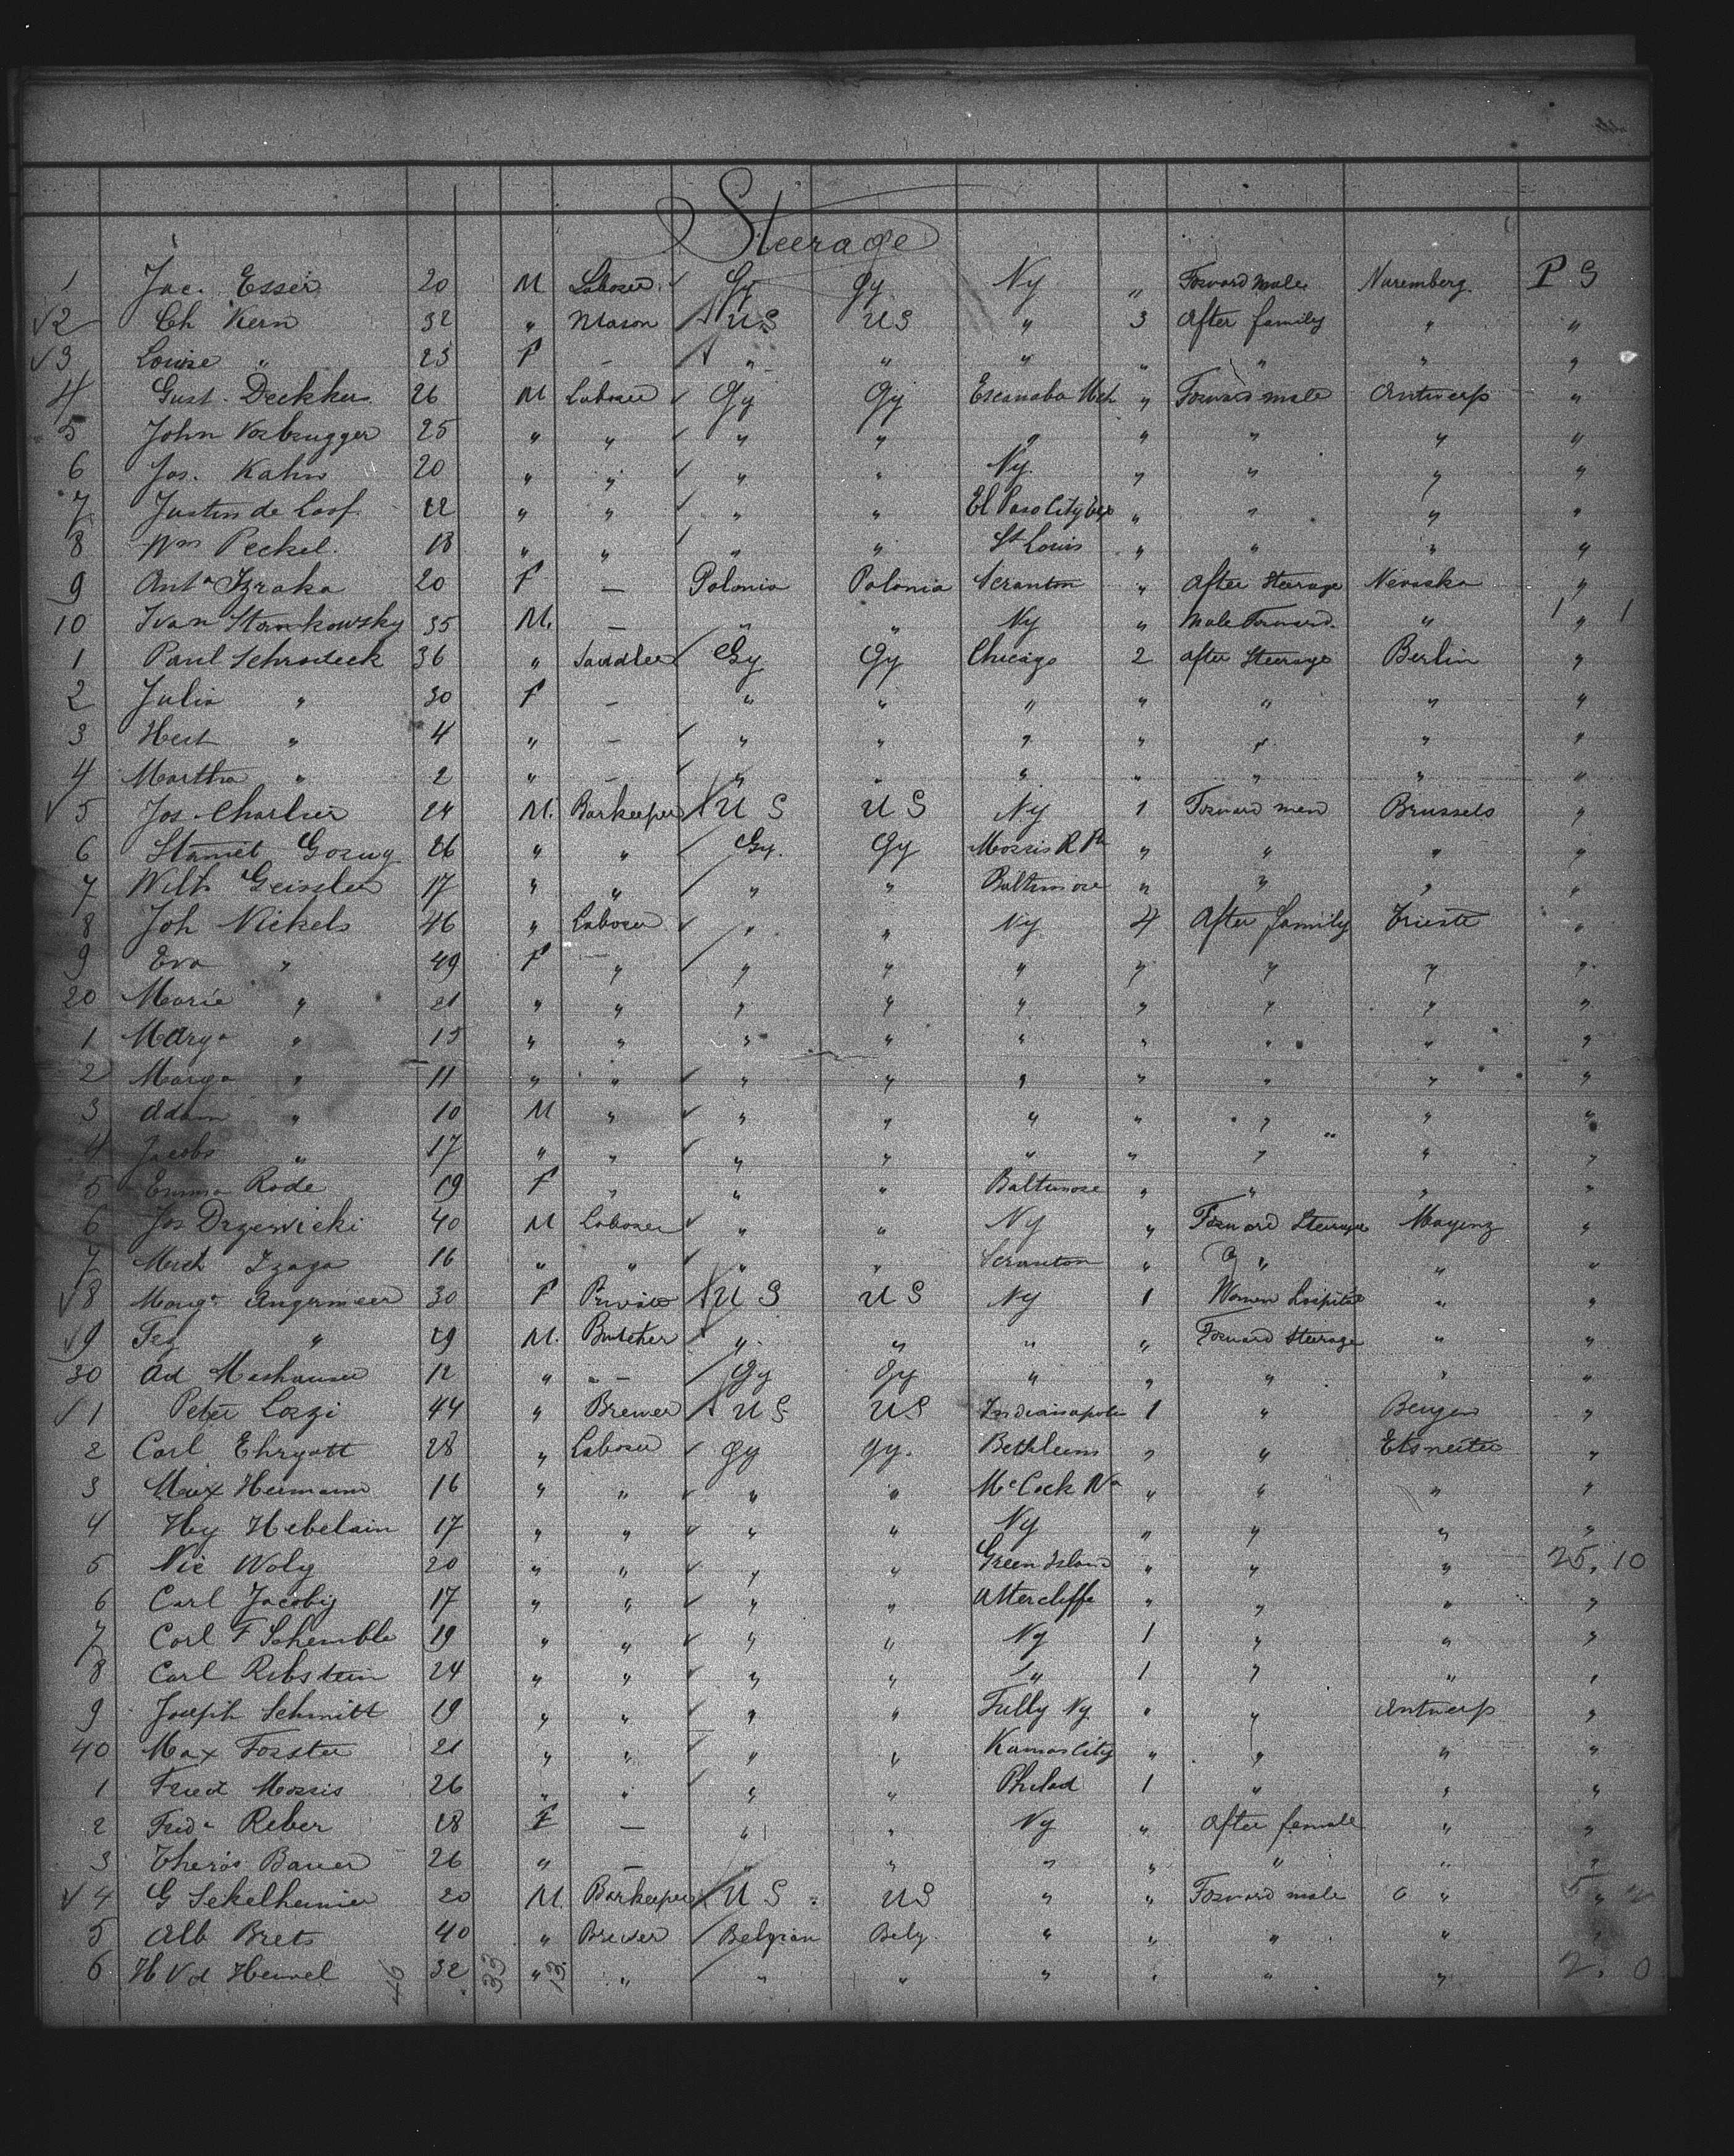 Steerage
1 Jac. Esser 20 M Laborer Gy Gy Ny " Forward male Nuremberg P S
2 Ch Kern 32 " Mason US US " 3 After family " "
3 Louise " 23 F — " " " " " " "
4 Gust. Deckker 26 M Laborer Gy Gy Escanaba Mch " Forward male Antwerp "
5 John 25 " " " " " " " " "
6 Jos. Kahn 20 " " " " Ny. " " " "
7 Justin de Loof 22 " " " " El Paso City Tex " " " "
8 Wm Peckel. 18 " " " " St Louis " " " "
9 Anta 20 F — Polonia Polonia Scranton " After Steerage "
10 Ivan Stankowsky 35 M. — " " Ny " Male Forward. " 1 " 1
1 Paul Schrodeck 36 " Saddler Gy Gy Chicago 2 After Steerage Berlin "
2 Julia " 30 F — " " " " " " "
3 " 4 " — " " " " " " "
4 Martha " 2 " — " " " " " " "
5 Jos. Charlier 24 M. Barkeeper U S U S Ny 1 Forward men Brussels "
6 26 " " Gy. Gy Morris R Pa " " " "
7 Wilh Geissler 17 " " " " Baltimore " " " "
8 Joh Nickels 46 " Laborer " " Ny 4 After family Trieste "
9 Eva " 49 F " " " " " " " "
20 Marie " 21 " " " " " " " " "
1 Marya " 15 " " " " " " " " "
2 Marga " 11 " " " " " " " " "
3 Adam " 10 M " " " " " " " "
4 Jacobs " 17 " " " " " " " " "
5 Emma Rode 19 F " " " Baltimore " " " "
6 Jos Drzewicki 40 M Laborer " " Ny " Forward Steerage Mayenz "
7 16 " " " " Scranton " " " "
8 Marga Angermeer 30 F Private U S U S Ny 1 Women hospital " "
9 " 29 M. Butcher " " " " Forward Steerage " "
30 Ad Mashauser 12 " " — Gy Gy " " " " "
1 Peter Lorzi 44 " Brewer U S U S Indianapolis 1 " "
2 Carl Ehrgott 28 " Laborer Gy Gy. Bethlem " " "
3 Max Hermann 16 " " " " " " " "
4 Hy Hebelain 17 " " " " Ny " " " "
5 Nic Woly 20 " " " " Green Island " " " 25. 10
6 Carl Jacoby 17 " " " " Attercliffe " " " "
7 Carl F Schemble 19 " " " " Ny 1 " " "
8 Carl Ribstein 24 " " " " " 1 " " "
9 Joseph Schmitt 19 " " " " Tully Ny. " " Antwerp "
40 Max Forster 21 " " " " Kansas City " " " "
1 Fried Morris 26 " " " " Philad 1 " " "
2 Frida Reber 18 F — " " Ny " After female " "
3 Theros Bauer 26 " — " " " " " " "
4 G Sekelheimer 20 M. Barkeeper U S US " " Forward male "
5 Alb Brets 40 " Brewer Belgian Belg. " " " " "
6 H Vd Heuvel 32 " " " " " " " " 2. 0
46 33 13.